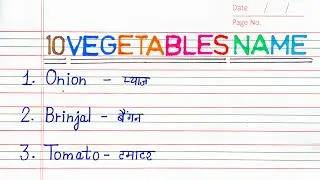 Date / /
Page No.
10 VEGETABLES NAME
1. Onion - प्याज
2. Brinjal - बैंगन
3. Tomato - टमाटर